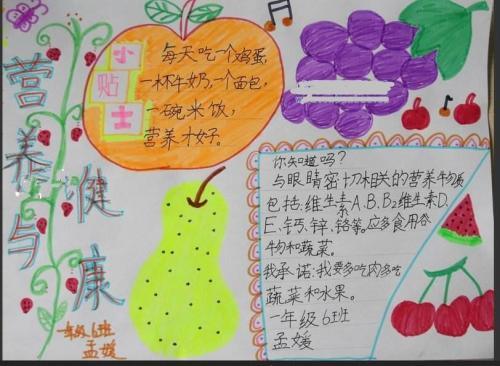 营养与健康
小贴士
每天吃一个鸡蛋,
一杯牛奶,一个面包,
一碗米饭,
营养才好。
你知道吗?
与眼睛密切相关的营养物质
包括:维生素A、B、B2维生素D、
E、钙、锌、铬等。应多食用谷
物和蔬菜。
我承诺:我要多吃肉多吃
蔬菜和水果。
一年级6班
孟媛
一年级6班
孟媛